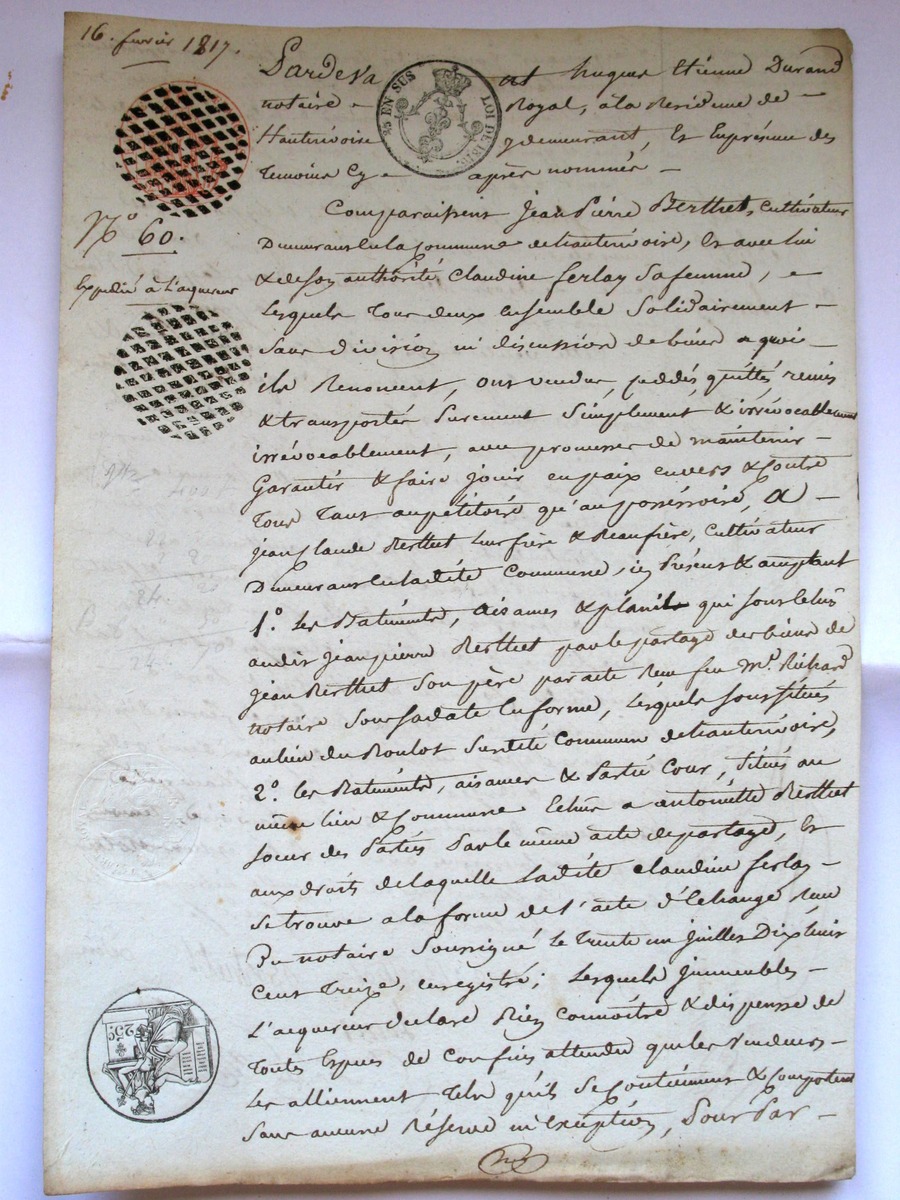 16. fevrier 1817.
Pardeva nt hugues Etienne Durand
notaire - Royal, à la Residence de -
Hauterivoire y demeurant, Et En présence des
temoins Cy - après nommés -
25 EN SUS LOI DE 1816
N° 60.
Expedié à l'acquereur
Comparaissent Jean Pierre Berthet, Cultivateur
Demeurant En la Commune de hauterivoire, Et avec lui
& de son authorité Claudine ferlay sa femme, -
Lesquels tous deux ensemble Solidairement -
Sans division ni discussion de biens a quoi -
ils Renoncent, ont vendu, Ceddés, quittés, remis
& transportés purement simplement & irrévocablement
irrévocablement, avec promesse de maintenir -
Garantir & faire jouir en paix envers & Contre
tous tant au pétitoire qu'au possessoire, A -
jean Claude Berthet leur frère & Beaufrère, Cultivateur
Demeurant En ladite Commune, icy Présent & acceptant
1.° Les Batiments, aisances & plan qui sont echus
audit jean pierre Berthet par le partage des biens de
jean Berthet Son père par acte Reçu feu M.e Richard
notaire Sous sa date En forme, Lesquels sont situés
au lieu du Boulot Susdite Commune de hauterivoire,
2.° Les Batiments, aisances & Partie Cour, Situés au
même lieu & Commune Echus a antoinette Berthet
soeur des Parties Par le même acte de partage, Et
aux droits de laquelle Ladite Claudine ferlay -
se trouve a la forme de l'acte d'Echange Reçu
Du notaire Soussigné le trente un juillet Dix huit
Cent treize, enregistré; Lesquels immeubles -
L'acquereur declare Bien Connoitre & dispense de
toutes Especes de Confins attendu que les vendeurs -
Les alliennent tels qu'ils se Contiennent & Comportent
Sans aucune Réserve ni Exception, Pour Par -
25.c